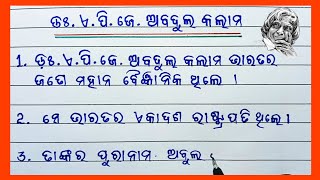 ଡଃ. ଏ.ପି.ଜେ. ଅବଦୁଲ କଲାମ
1. ଡଃ. ଏ.ପି.ଜେ. ଅବଦୁଲ୍ କଲାମ ଭାରତର
ଜଣେ ମହାନ ବୈଜ୍ଞାନିକ ଥିଲେ ।
2. ସେ ଭାରତର ଏକାଦଶ ରାଷ୍ଟ୍ରପତି ଥିଲେ।
3. ତାଙ୍କର ପୁରାନାମ- ଅବୁଲ